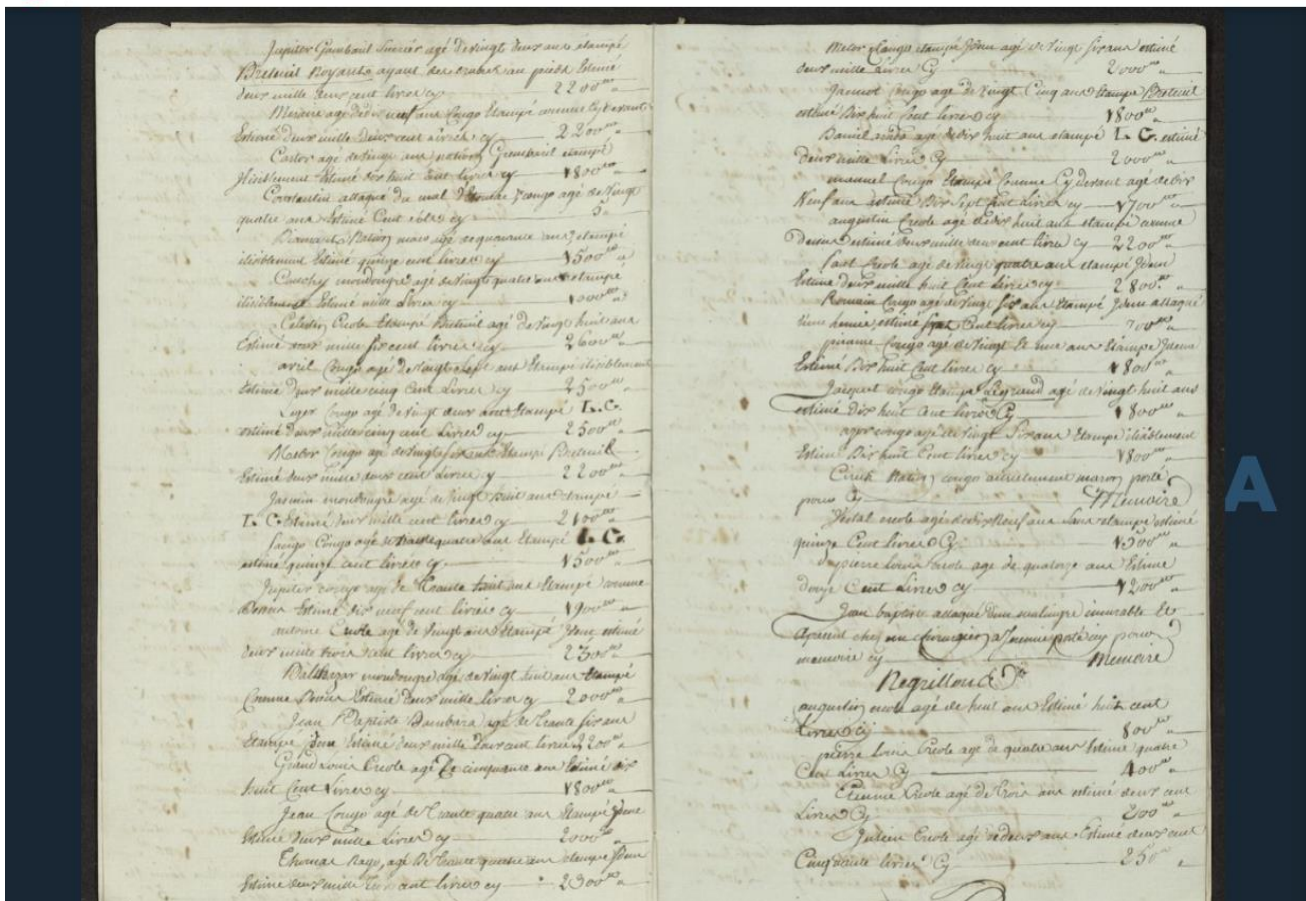 Jupiter Gambaril Sucrier agé de vingt deux ans étampé
Breteuil Royauté ayant des crabes au pieds Estimé
deux mille deux cent livres cy 2200"
agé de dix neuf ans Congo Etampé comme Cy devant
Estimé deux mille deux cent livres cy 2200"
Castor agé de vingt ans nation Gambaril etampé
illisiblement Estimé dix huit Cent livres cy 1800"
Constantin attaqué du mal Congo agé de vingt
quatre ans Estimé Cent cy
Diamant Nation agé de quarante ans étampé
illisiblement Estimé quinze cent livres cy 1500"
mondongue agé de vingt quatre ans etampé
illisiblement Estimé mille livres cy 1000"
Celestin Creole Etampé Breteuil agé de vingt huit ans
Estimé deux mille six cent livres cy 2600"
avril Congo agé de vingt sept ans Etampé illisiblement
Estimé deux mille cinq Cent Livres cy 2500"
Congo agé de vingt deux ans Etampé L.C.
estimé deux mille cinq cent Livres cy 2500"
Congo agé de vingt six ans Etampé Breteuil
Estimé deux mille deux cent livres cy 2200"
Jasmin mondongue agé de vingt huit ans etampé
L.C. Estimé deux mille cent livres cy 2100"
Congo agé de quatre ans Etampé L.C.
estimé quinze cent livres cy 1500"
Jupiter congo agé de Trente huit ans Etampé comme
dessus Estimé dix neuf cent livres cy 1900"
antoine Creole agé de vingt ans Etampé Idem estimé
deux mille trois cent livres cy 2300"
Balthazar mondongue agé de vingt huit ans etampé
Comme dessus Estimé deux mille livres cy 2000"
Jean Baptiste Bambara agé de Trente six ans
Etampé Idem Estimé deux mille deux cent livres 2200"
Grand Louis Creole agé de cinquante ans Estimé dix
huit Cent Livres cy 1800"
Jean Congo agé de Trente quatre ans Etampé Idem
Estimé deux mille Livres cy 2000"
Thomas Nago, agé de Trente quatre ans etampé Idem
Estimé deux mille trois cent livres cy 2300"
Congo etampé Idem agé de vingt six ans estimé
deux mille Livres Cy 2000"
Jeannot Congo agé de vingt Cinq ans Etampé Breteuil
estimé Dix huit Cent livres cy 1800"
Daniel agé de dix huit ans etampé L.C. estimé
deux mille Livres Cy 2000"
manuel Congo Etampé Comme Cy devant agé de dix
Neuf ans estimé Dix Sept Cent Livres cy 1700"
augustin Creole agé de dix huit ans etampé comme
Dessus estimé deux mille deux cent livres cy 2200"
Creole agé de vingt quatre ans etampé Idem
Estimé deux mille huit Cent livres cy 2800"
Romain Congo agé de vingt six ans Etampé Idem attaqué
d'une hernie, estimé sept Cent livres cy 700"
Congo agé de vingt Et une ans Etampé Idem
Estimé Dix huit Cent livres cy 1800"
Jacquet congo Etampé Legrand agé de vingt huit ans
estimé dix huit Cent livres Cy 1800"
congo agé de vingt Six ans Etampé illisiblement
Estimé Dix huit Cent livres cy 1800"
Nation congo actuellement maron porté
pour Cy Memoire
creole agé de dix Neuf ans Sans etampe estimé
quinze Cent livres Cy 1500"
pierre Louis Creole agé de quatorze ans Estimé
douze Cent Livres cy 1200"
Jean baptiste attaqué d'un malingre incurable Et
apresent chez un chirurgien a porté icy pour
memoire cy Memoire
Negrillons
augustin creole agé de huit ans Estimé huit cent
Livres cy 800"
pierre louis Creole agé de quatre ans Estimé quatre
Cent Livres Cy 400"
Etienne Creole agé de trois ans estimé deux cent
Livres Cy 200"
Creole agé de deux ans Estimé deux cent
Cinquante livres Cy 250"
A